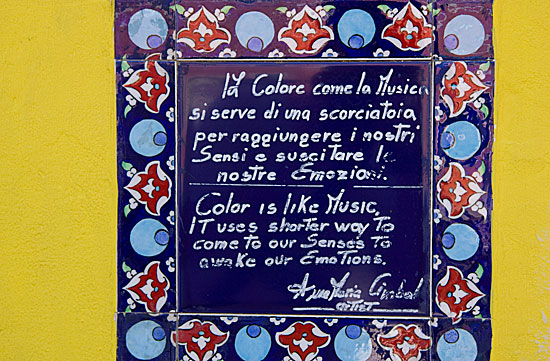 Il Colore come la Musica
si serve di una scorciatoia
per raggiungere i nostri
Sensi e suscitare le
nostre Emozioni.
Color is like Music,
IT uses shorter way To
come to our Senses To
awake our Emotions.
Anna Maria
artist